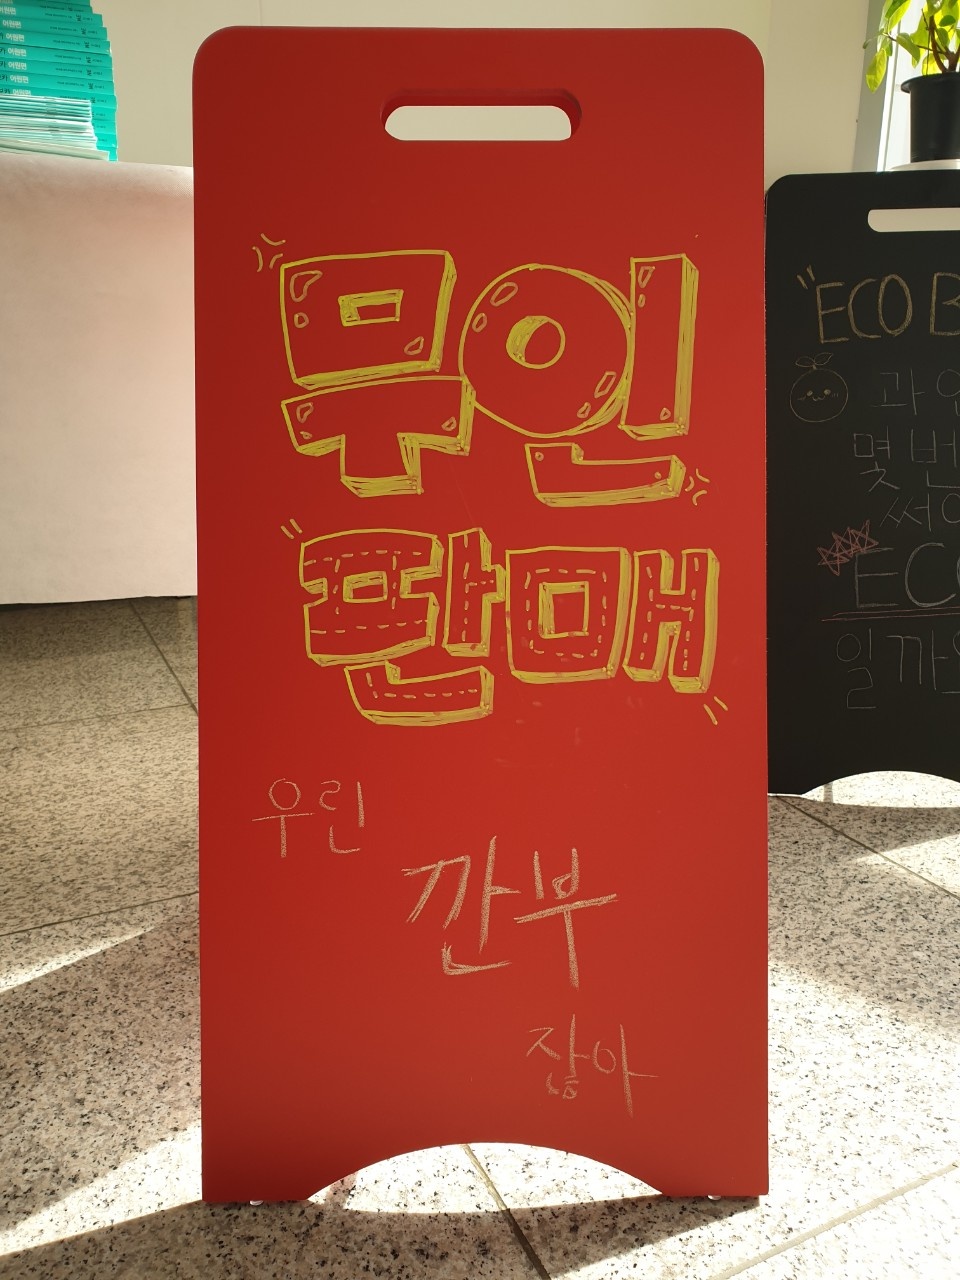 무인
판매
우린
깐부
잖아
ECO B
과연
몇 번
써야
ECO
일까요
어원편